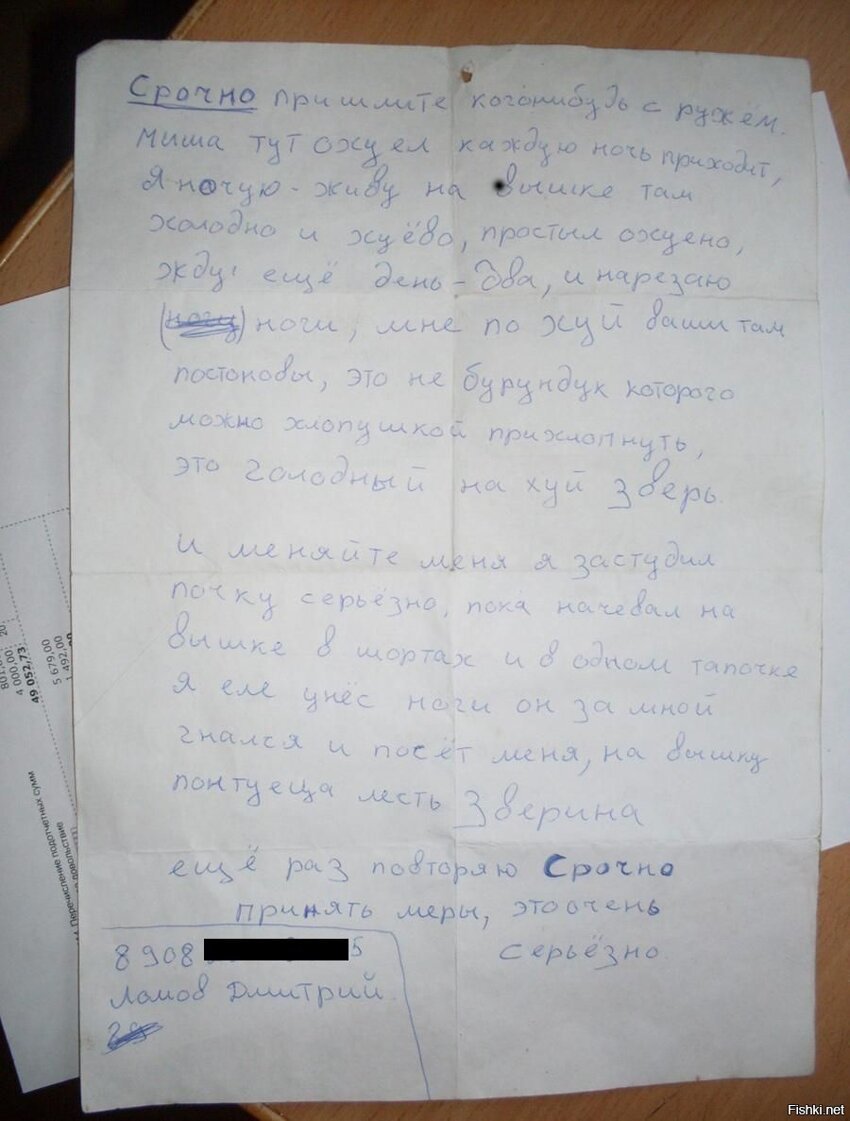 Срочно пришлите когонибудь с ружём.
Миша тут охуел каждую ночь приходит,
Я ночую - живу на вышке там
холодно и хуёво, простыл охуено,
жду ещё день - два, и нарезаю
ноги, мне по хуй ваши там
постоновы, это не бурундук которого
можно хлопушкой прихлопнуть,
это голодный на хуй зверь.
И меняйте меня я застудил
почку серьёзно, пока начевал на
вышке в шортах и в одном тапочке
я еле унёс ноги он за мной
гнался и посёт меня, на вышку
понтуеща лесть Зверина
ещё раз повторяю Срочно
принять меры, это очень
серьёзно
8 908 5
Ломов Дмитрий
801,
20
4 000,00
49 052,73
5 679,00
1 492,00
Перечисление подотчетных сумм
Fishki.net